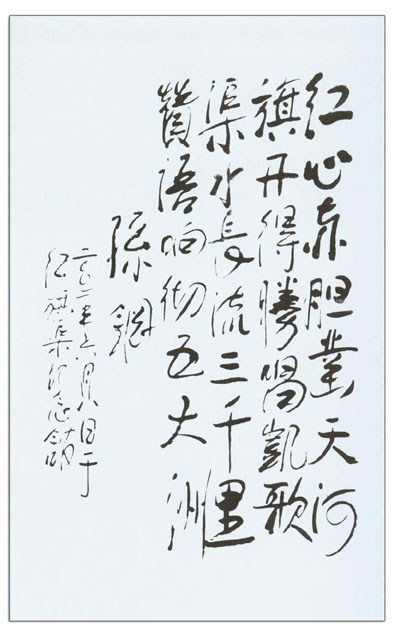 红心赤胆凿天河
旗开得勝唱凱歌
渠水长流三千里
赞语响彻五大洲
二〇〇二年六月八日于
红旗渠纪念馆